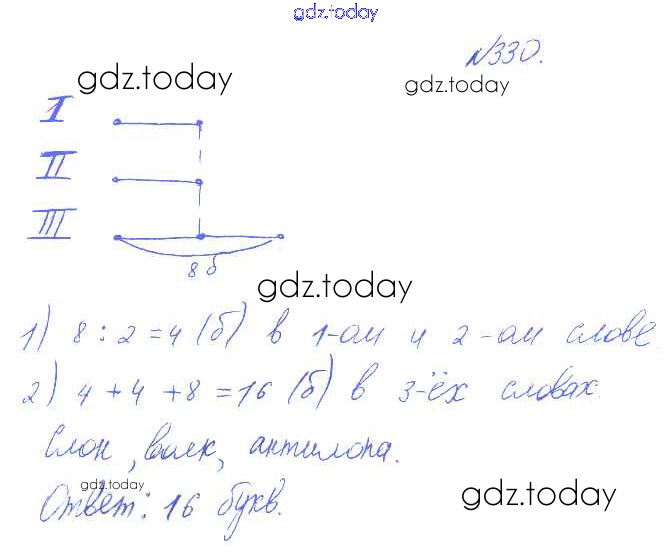 gdz.today
№330.
gdz.today
gdz.today
I
II
III
8 б
gdz.today
1) 8 : 2 = 4 (б) в 1-ом и 2-ом слове
2) 4 + 4 + 8 = 16 (б) в 3-ёх словах.
Слон, волк, антилопа.
gdz.today
Ответ: 16 букв.
gdz.today